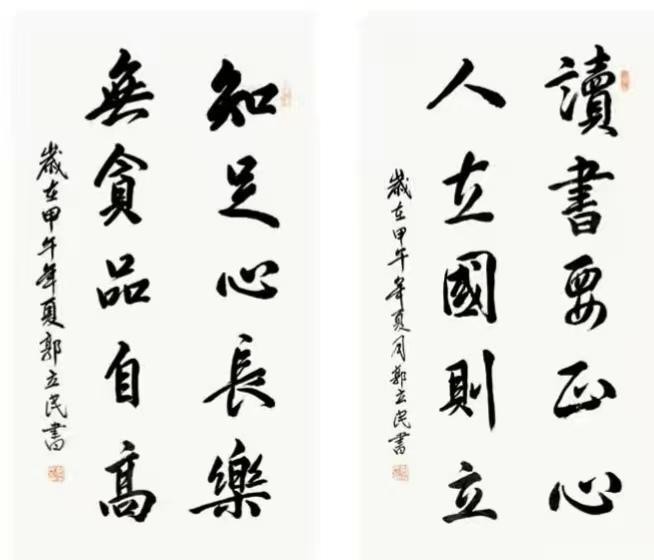 讀書要正心
人立國則立
歲在甲午年夏月郭立民書
知足心長樂
無貪品自高
歲在甲午年夏郭立民書